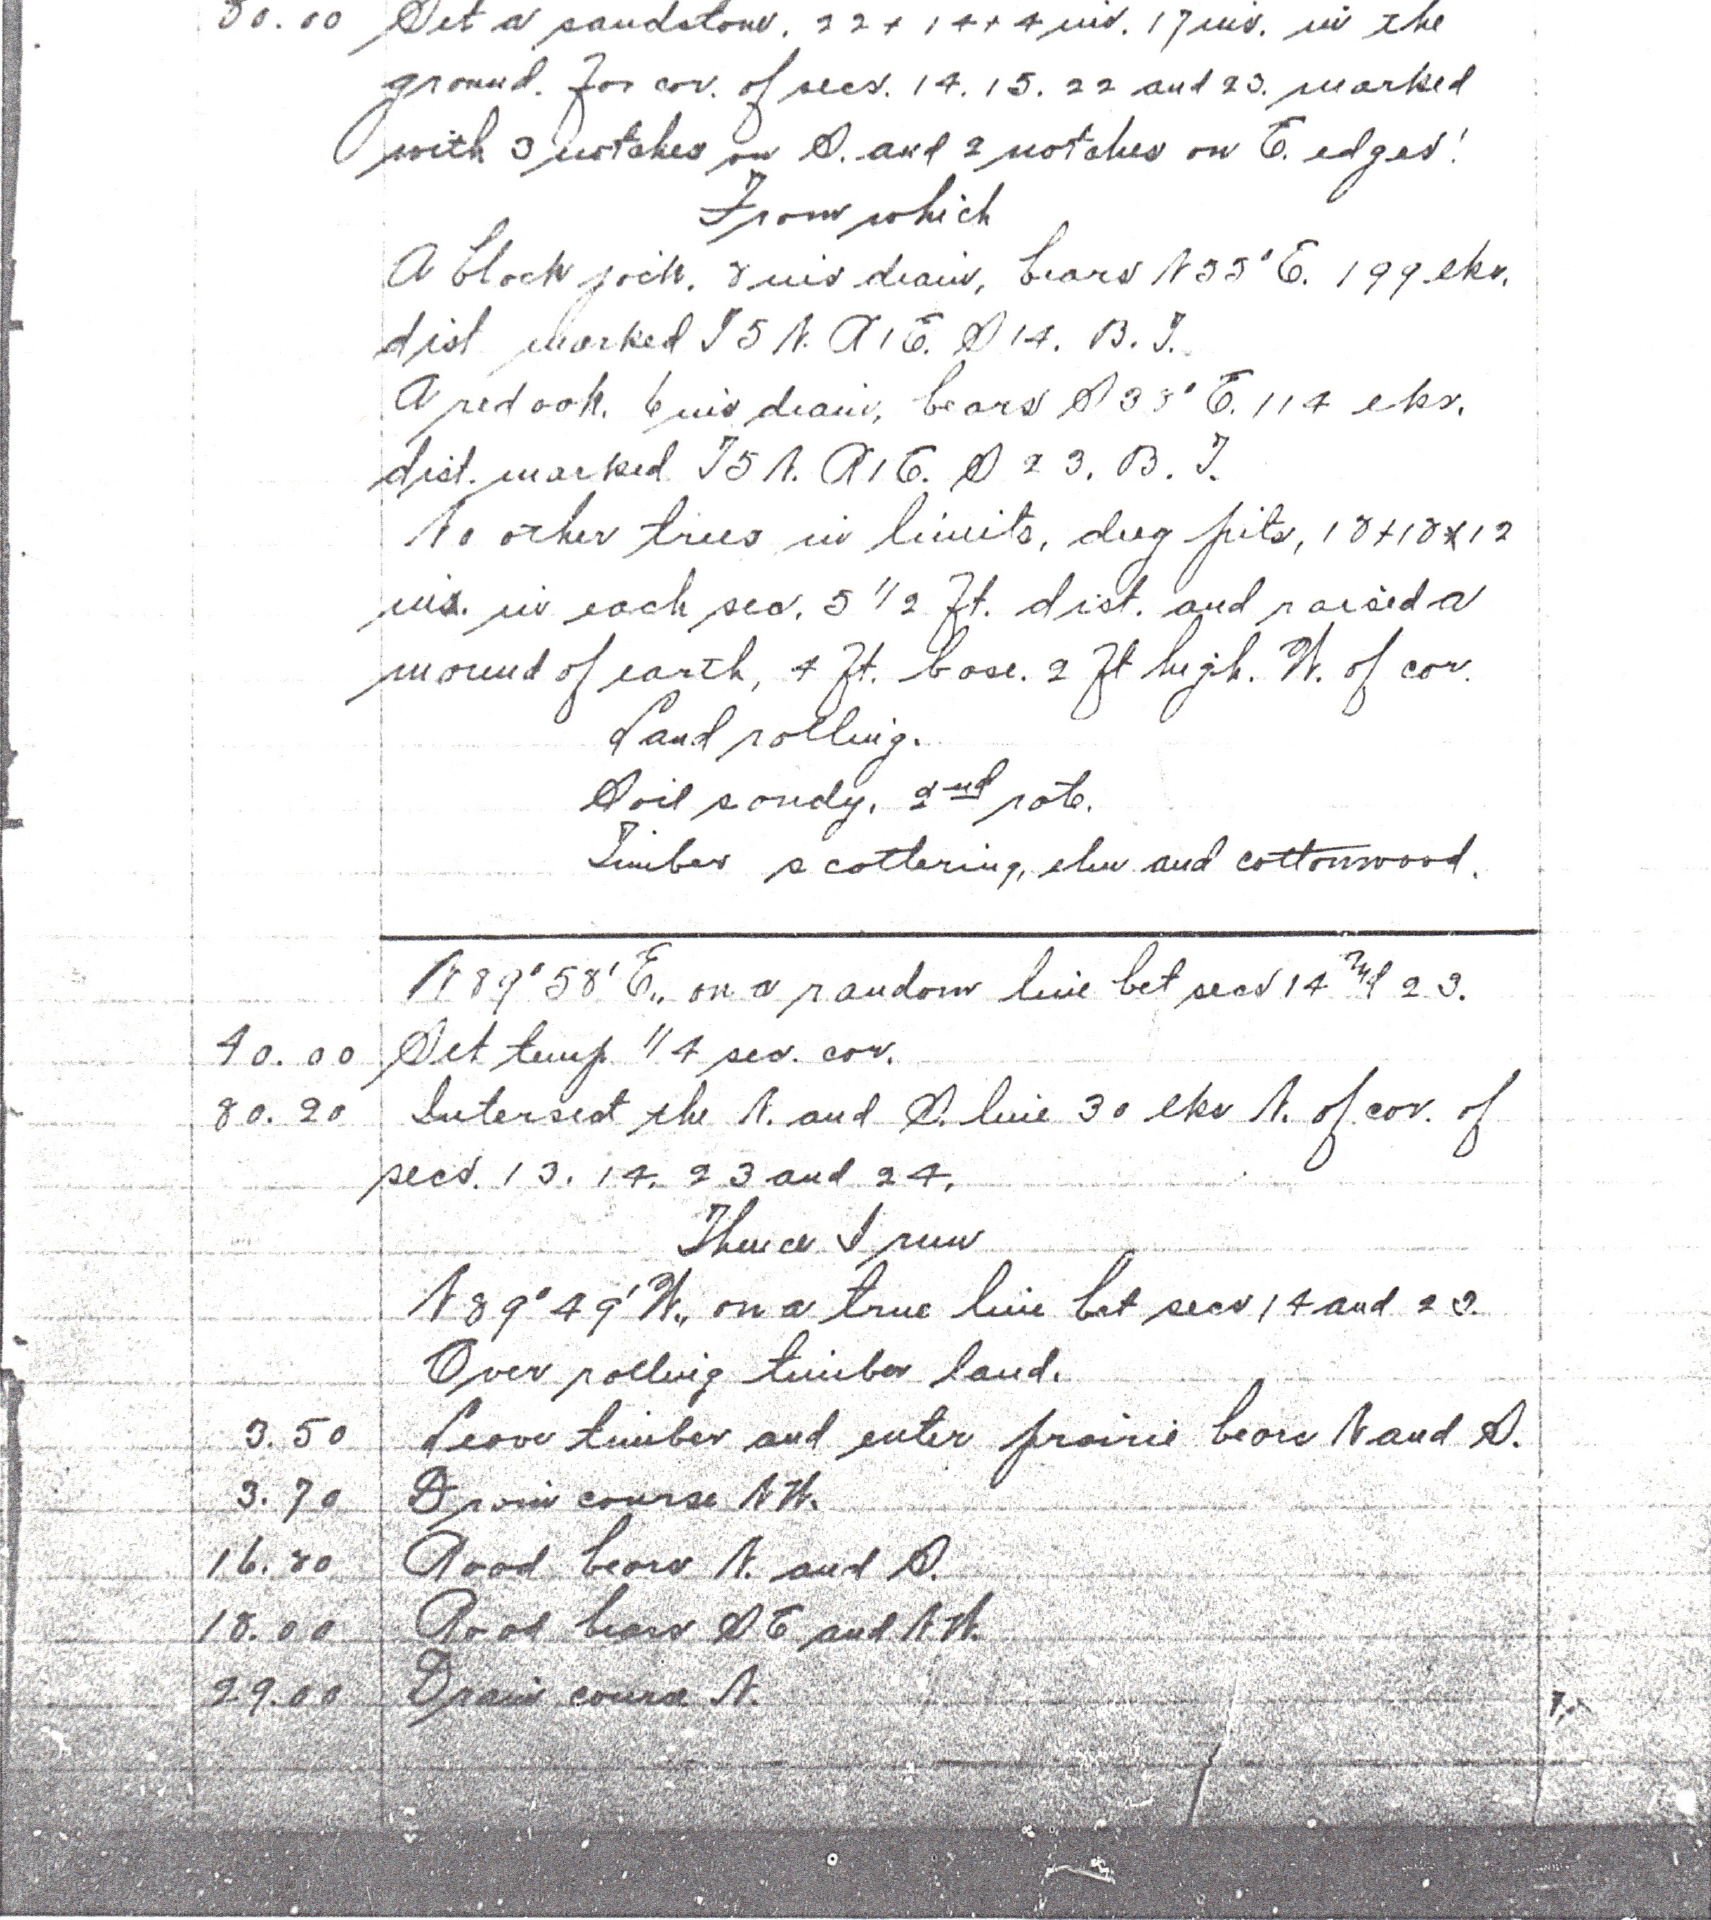 80.00 Set a sandstone, 22 x 14 x 4 ins. 17 ins. in the
ground. For cor. of secs. 14. 15. 22 and 23. marked
with 3 notches on S. and 2 notches on E. edges!
From which
A black jack. 8 ins diam, bears N 33° E. 199 lks.
dist marked T 5 N. R 1 E. S 14. B. T.
A red oak. 6 ins diam, bears S 38° E. 114 lks.
dist. marked T 5 N. R 1 E. S 23. B. T.
No other trees in limits, dug pits, 18 x 18 x 12
ins. in each sec. 5 1/2 ft. dist. and raised a
mound of earth, 4 ft. base. 2 ft high. W. of cor.
Land rolling.
Soil sandy. 2nd rate.
Timber scattering, elm and cottonwood.
N 89° 58' E., on a random line bet secs 14 and 23.
40.00 Set temp 1/4 sec. cor.
80.20 Intersect the N. and S. line 30 lks N. of cor. of
secs. 13. 14. 23 and 24.
Thence I run
N 89° 49' W., on a true line bet secs 14 and 23.
Over rolling timber land.
3.50 Leave timber and enter prairie bears N and S.
3.70 Drain course NW.
16.80 Road bears N. and S.
18.00 Road bears SE and NW.
29.00 Drain course N.